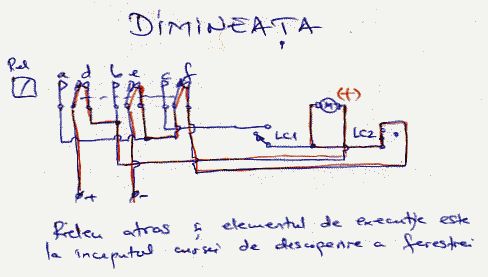 DIMINEAȚA
Rel
a d b e c f
M (+)
LC1 LC2
+ -
Releu atras și elementul de execuție este
la inceputul cursei de descoperire a ferestrei